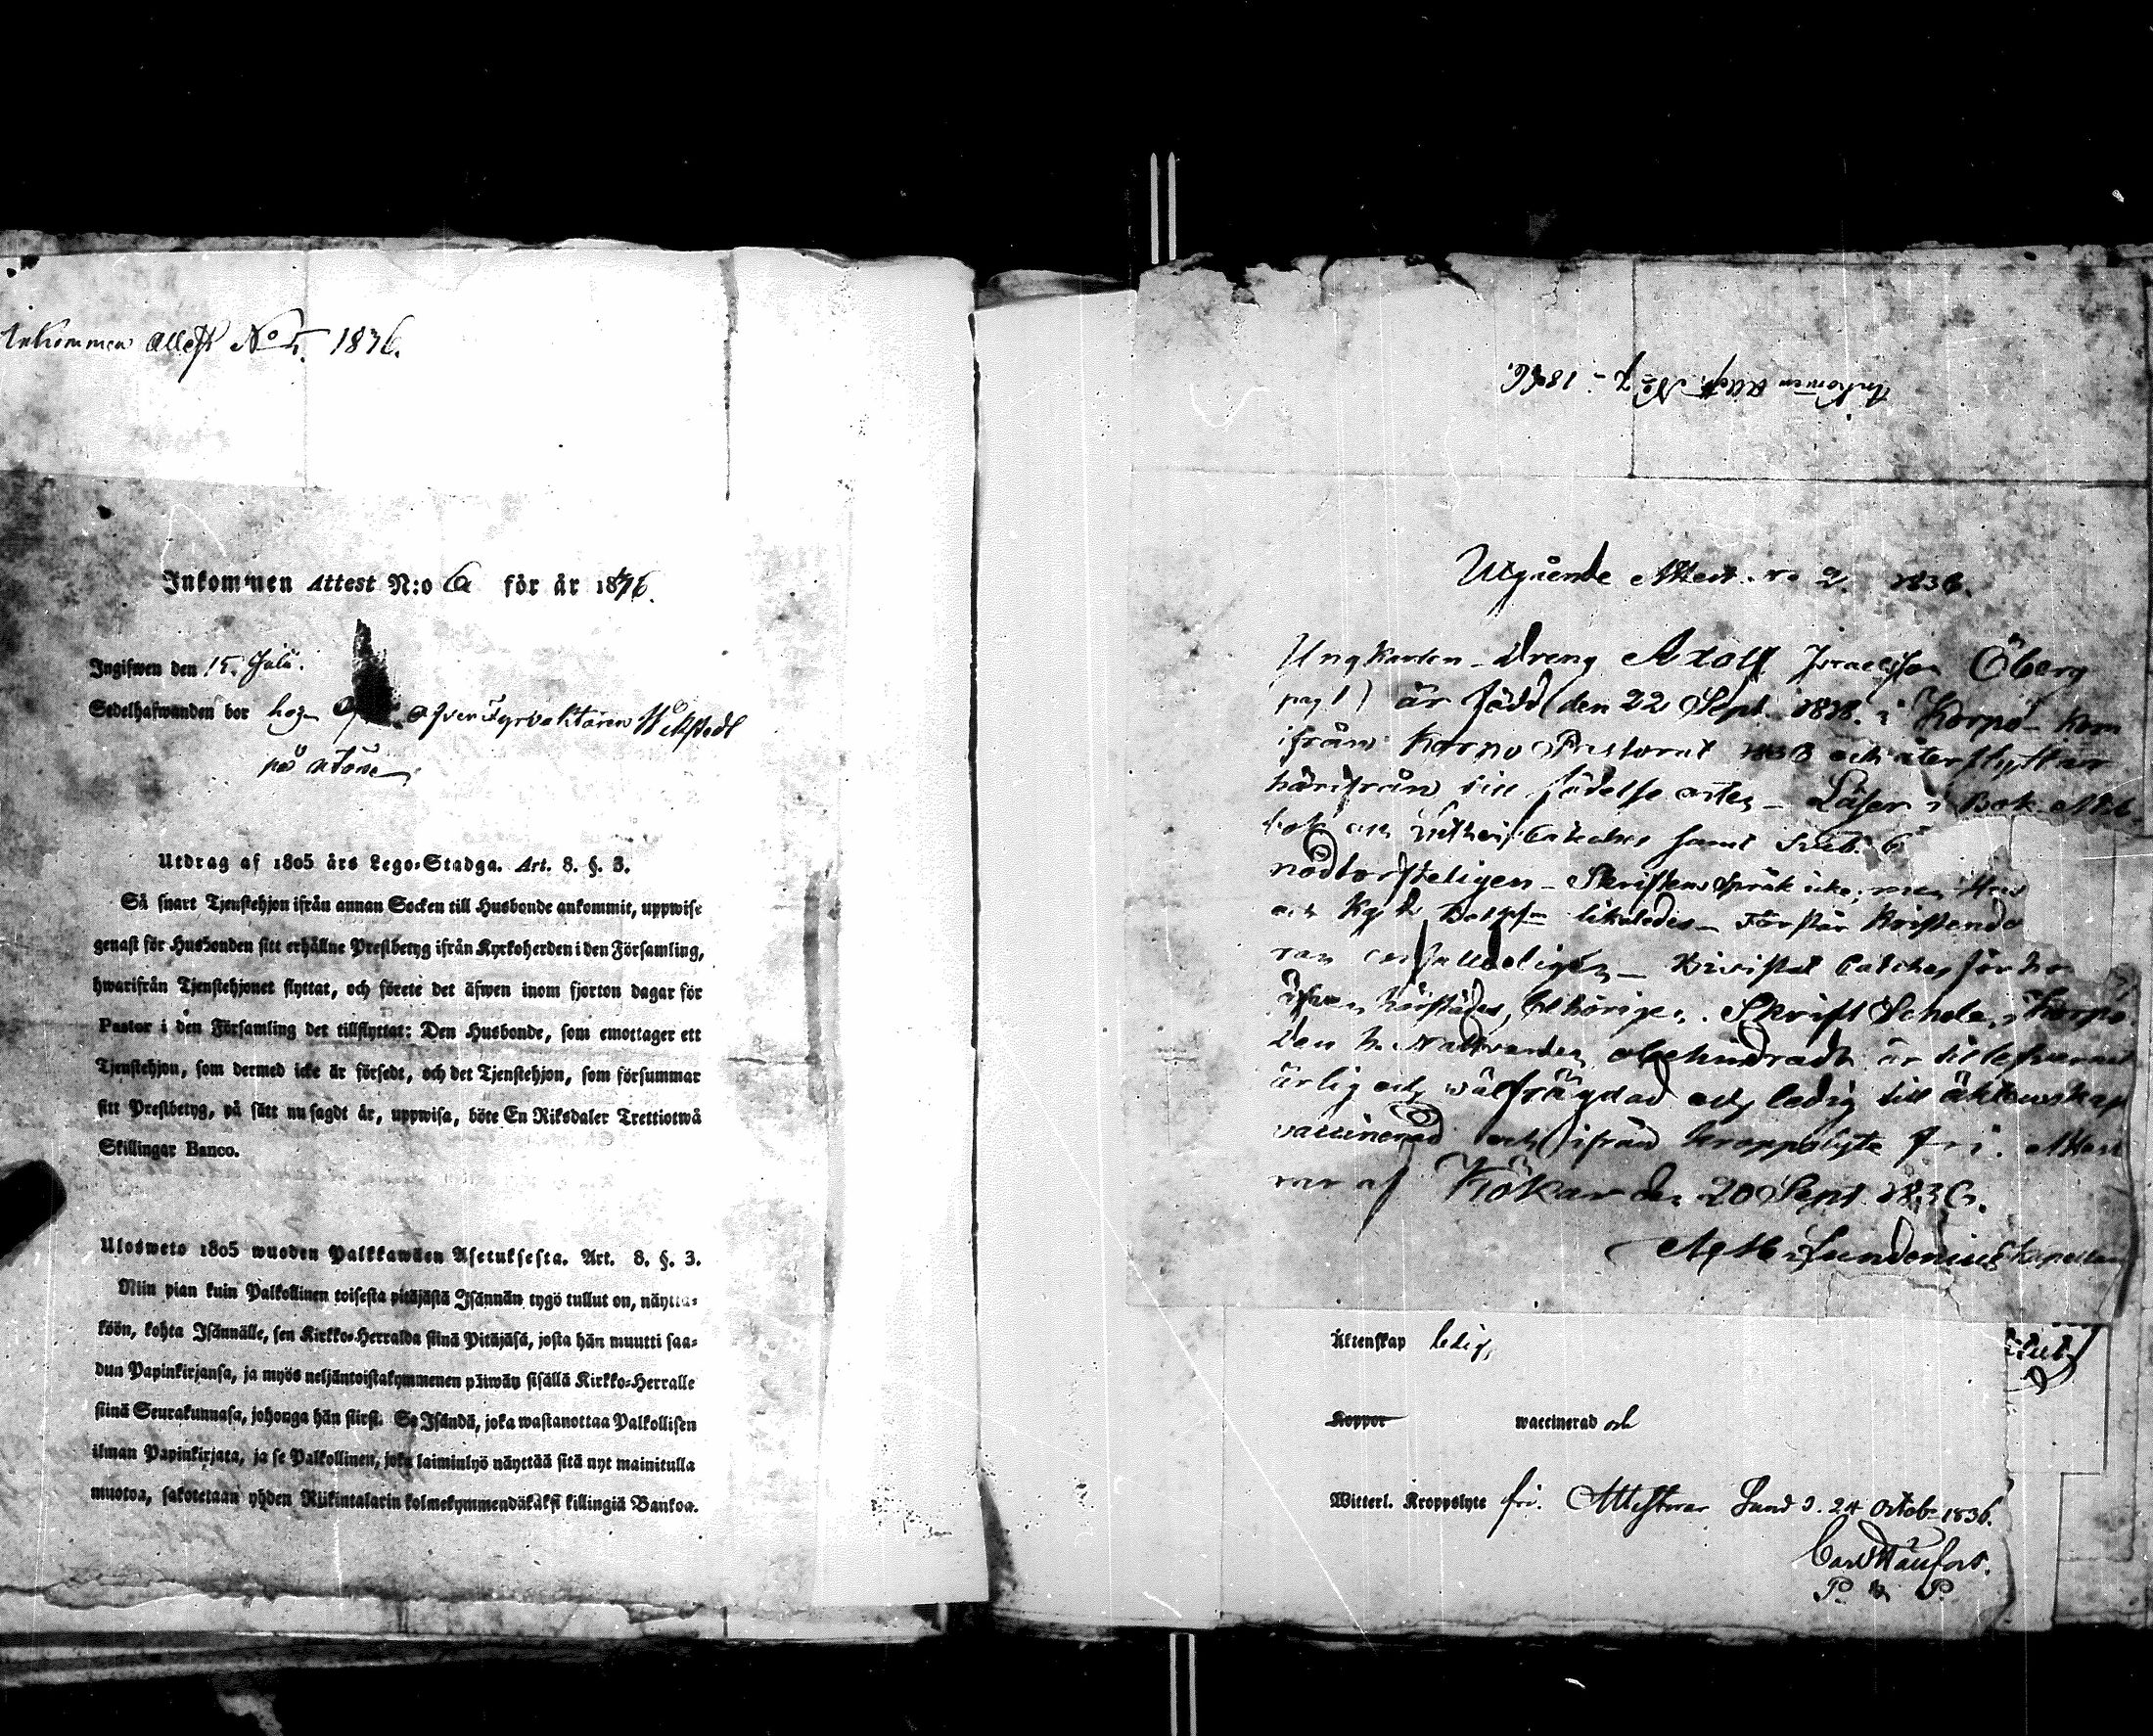 Inkommen Attest No 5. 1836.
Inkommen Attest N:o 6 för år 1836.
Ingifwen den 15 Julii.
Sedelhafwanden bor hos öfverstyrvaktaren Wikstedt
på Utöen
Utdrag af 1805 års Lego-Stadga. Art. 8. §. 3.
Så snart Tjenstehjon ifrån annan Socken till Husbonde ankommit, uppwise
genast för Husbonden sitt erhållne Prestbetyg ifrån Kyrkoherden i den Församling,
hwarifrån Tjenstehjonet flyttat, och förete det äfwen inom fjorton dagar för
Pastor i den Församling det tillflyttat: Den Husbonde, som emottager ett
Tjenstehjon, som dermed icke är försedt, och det Tjenstehjon, som försummar
sitt Prestbetyg, på sätt nu sagdt är, uppwisa, böte En Riksdaler Trettiotwå
Skillingar Banco.
Ulosweto 1805 wuoden Palkkawäen Asetuksesta. Art. 8. §. 3.
Niin pian kuin Palkollinen toisesta pitäjästä Isännän tygö tullut on, näyttä-
köön, kohta Isännälle, sen Kirkko-Herralda siinä Pitäjäsä, josta hän muutti saa-
dun Papinkirjansa, ja myös neljäntoistakymmenen päiwän sisällä Kirkko-Herralle
siinä Seurakunnasa, johonga hän siirst. Se Isändä, joka wastanottaa Palkollisen
ilman Papinkirjata, ja se Palkollinen, joka laiminlyö näyttää sitä nyt mainitulla
muotoa, sakotetaan yhden Riikintalarin kolmekymmendäkaksi killingiä Bankoa.
Inkommen Attest No 7 - 1836.
Utgående Attest n:o 2. 1836.
Ungkarlen Dreng Adolf Israelsson Öberg
pag 1) är född den 22 Sept. 1818. i Korpo - kom
ifrån Korpo Pastorat och återflyttar
härifrån till födelse orten - Läser i Bok
bok och Luthers Cateches samt
nödtorfteligen - Skriftens språk icke, men
och likaledes - Förstår Kristendo
men enfalldeligen - Bivistat Cateches förhör
äfven härstädes, behörigen. Skrift Schola, i Korpo
Den h. Nattvarden obehindradt är
ärlig och välfrägdad och ledig till äktenskap
vaccinerad och ifrån kroppslyte fri. Attest
rar af Kökar den 20 Sept 1836.
Lundenius Kapellan
Äktenskap ledig,
Koppor waccinerad och
Witterl. Kroppslyte fri. Attesterar Sund d. 24 Octob 1836.
Carl
P. P.